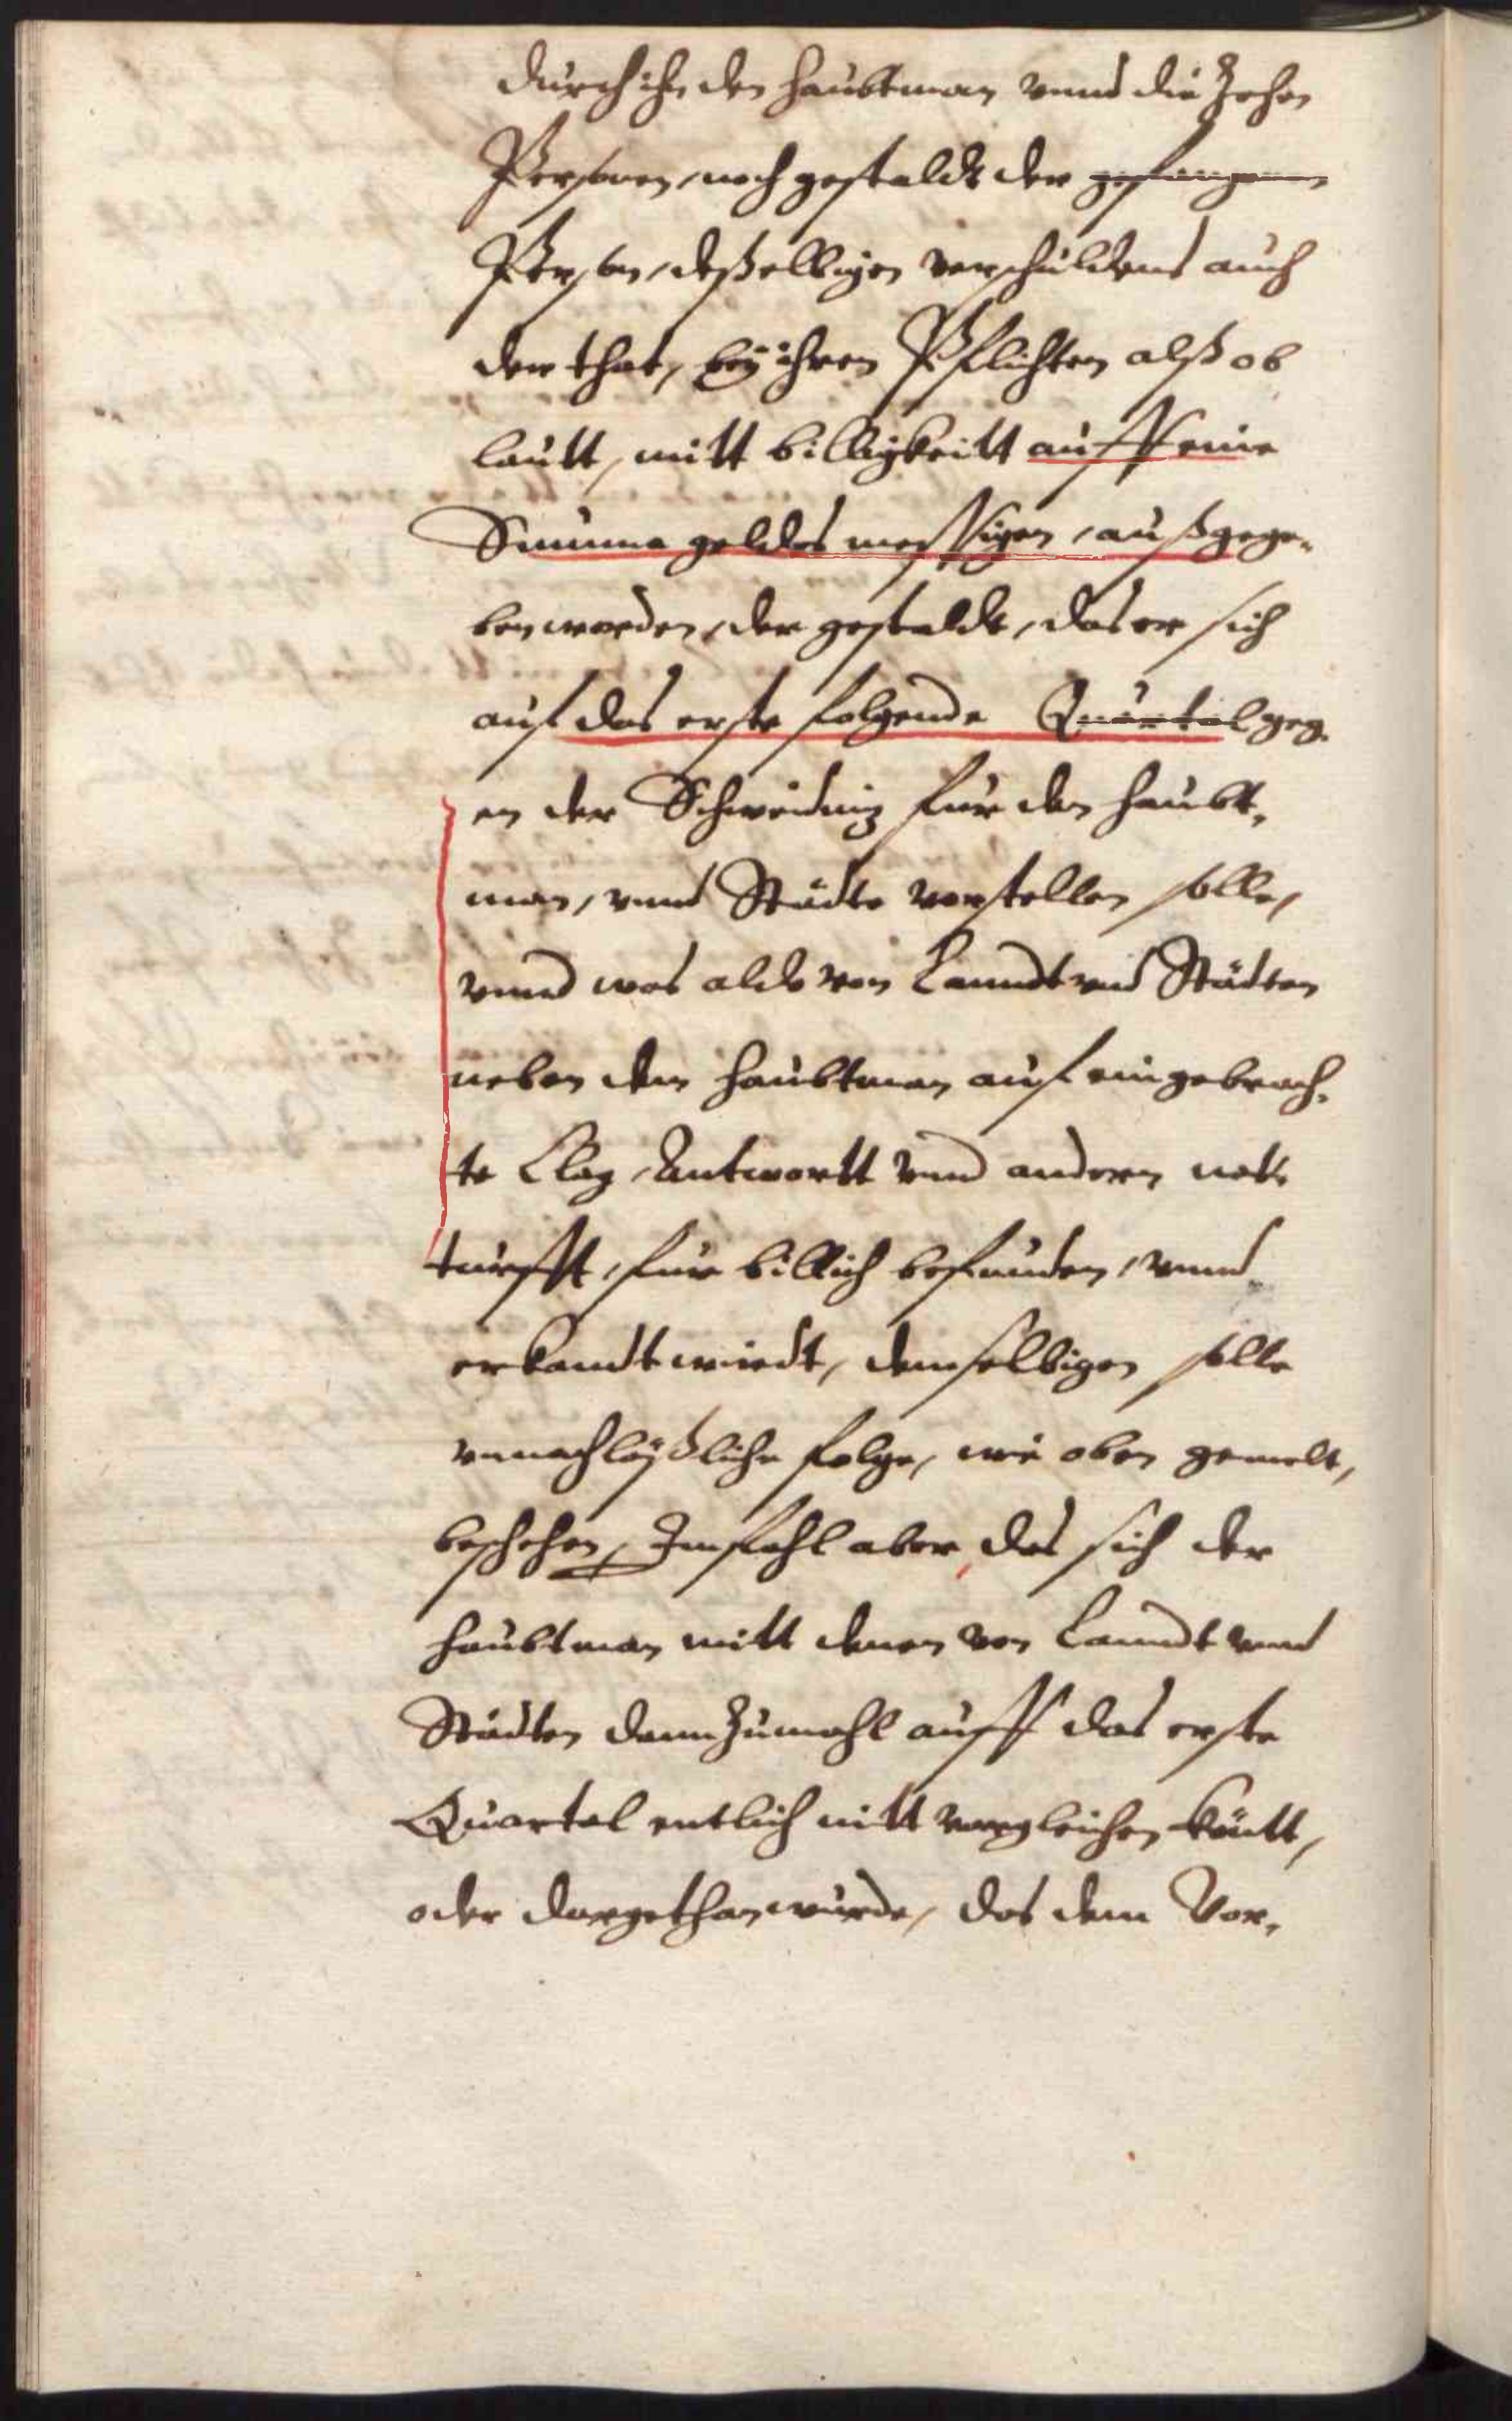 durch ihn den Haubtman vnnd die Zehen
Personen, nach gestaldt der gefangenen
Person, deßelbigen verschuldens auch
der that, bey ihren Pflichten alß ob
lautt, mitt billigkeitt auff eine
Summa geldes messigen, außgege-
ben werden, der gestaldt, das er sich
auf das erste folgende Quartal geg-
en der Schweidnitz für den Haubt-
man, vnnd Städte verstellen solle,
vnnd was aldo von Lanndt vnd Städten
neben dem Haubtman auf eingebrach-
te Clag, Antwortt vnnd andern not-
turfft, für billich befunden, vnnd
erkandt wirdt, demselbigen solle
vnnachläßliche folge, wie oben gemelt,
beschehen, Im fahl aber das sich der
Haubtman mitt denen von Lanndt vnnd
Städten dann Zumahl auff das erste
Quartal entlich nitt vergleichen köntt,
oder dargethan würde, das dem Vor-